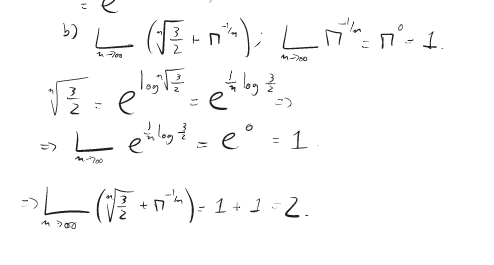 = e
b) L n→∞ (ⁿ√(3/2) + π^(-1/n)); L n→∞ π^(-1/n) = π^0 = 1.
ⁿ√(3/2) = e^(log ⁿ√(3/2)) = e^(1/n log 3/2) =>
=> L n→∞ e^(1/n log 3/2) = e^0 = 1
=> L n→∞ (ⁿ√(3/2) + π^(-1/n)) = 1 + 1 = 2.